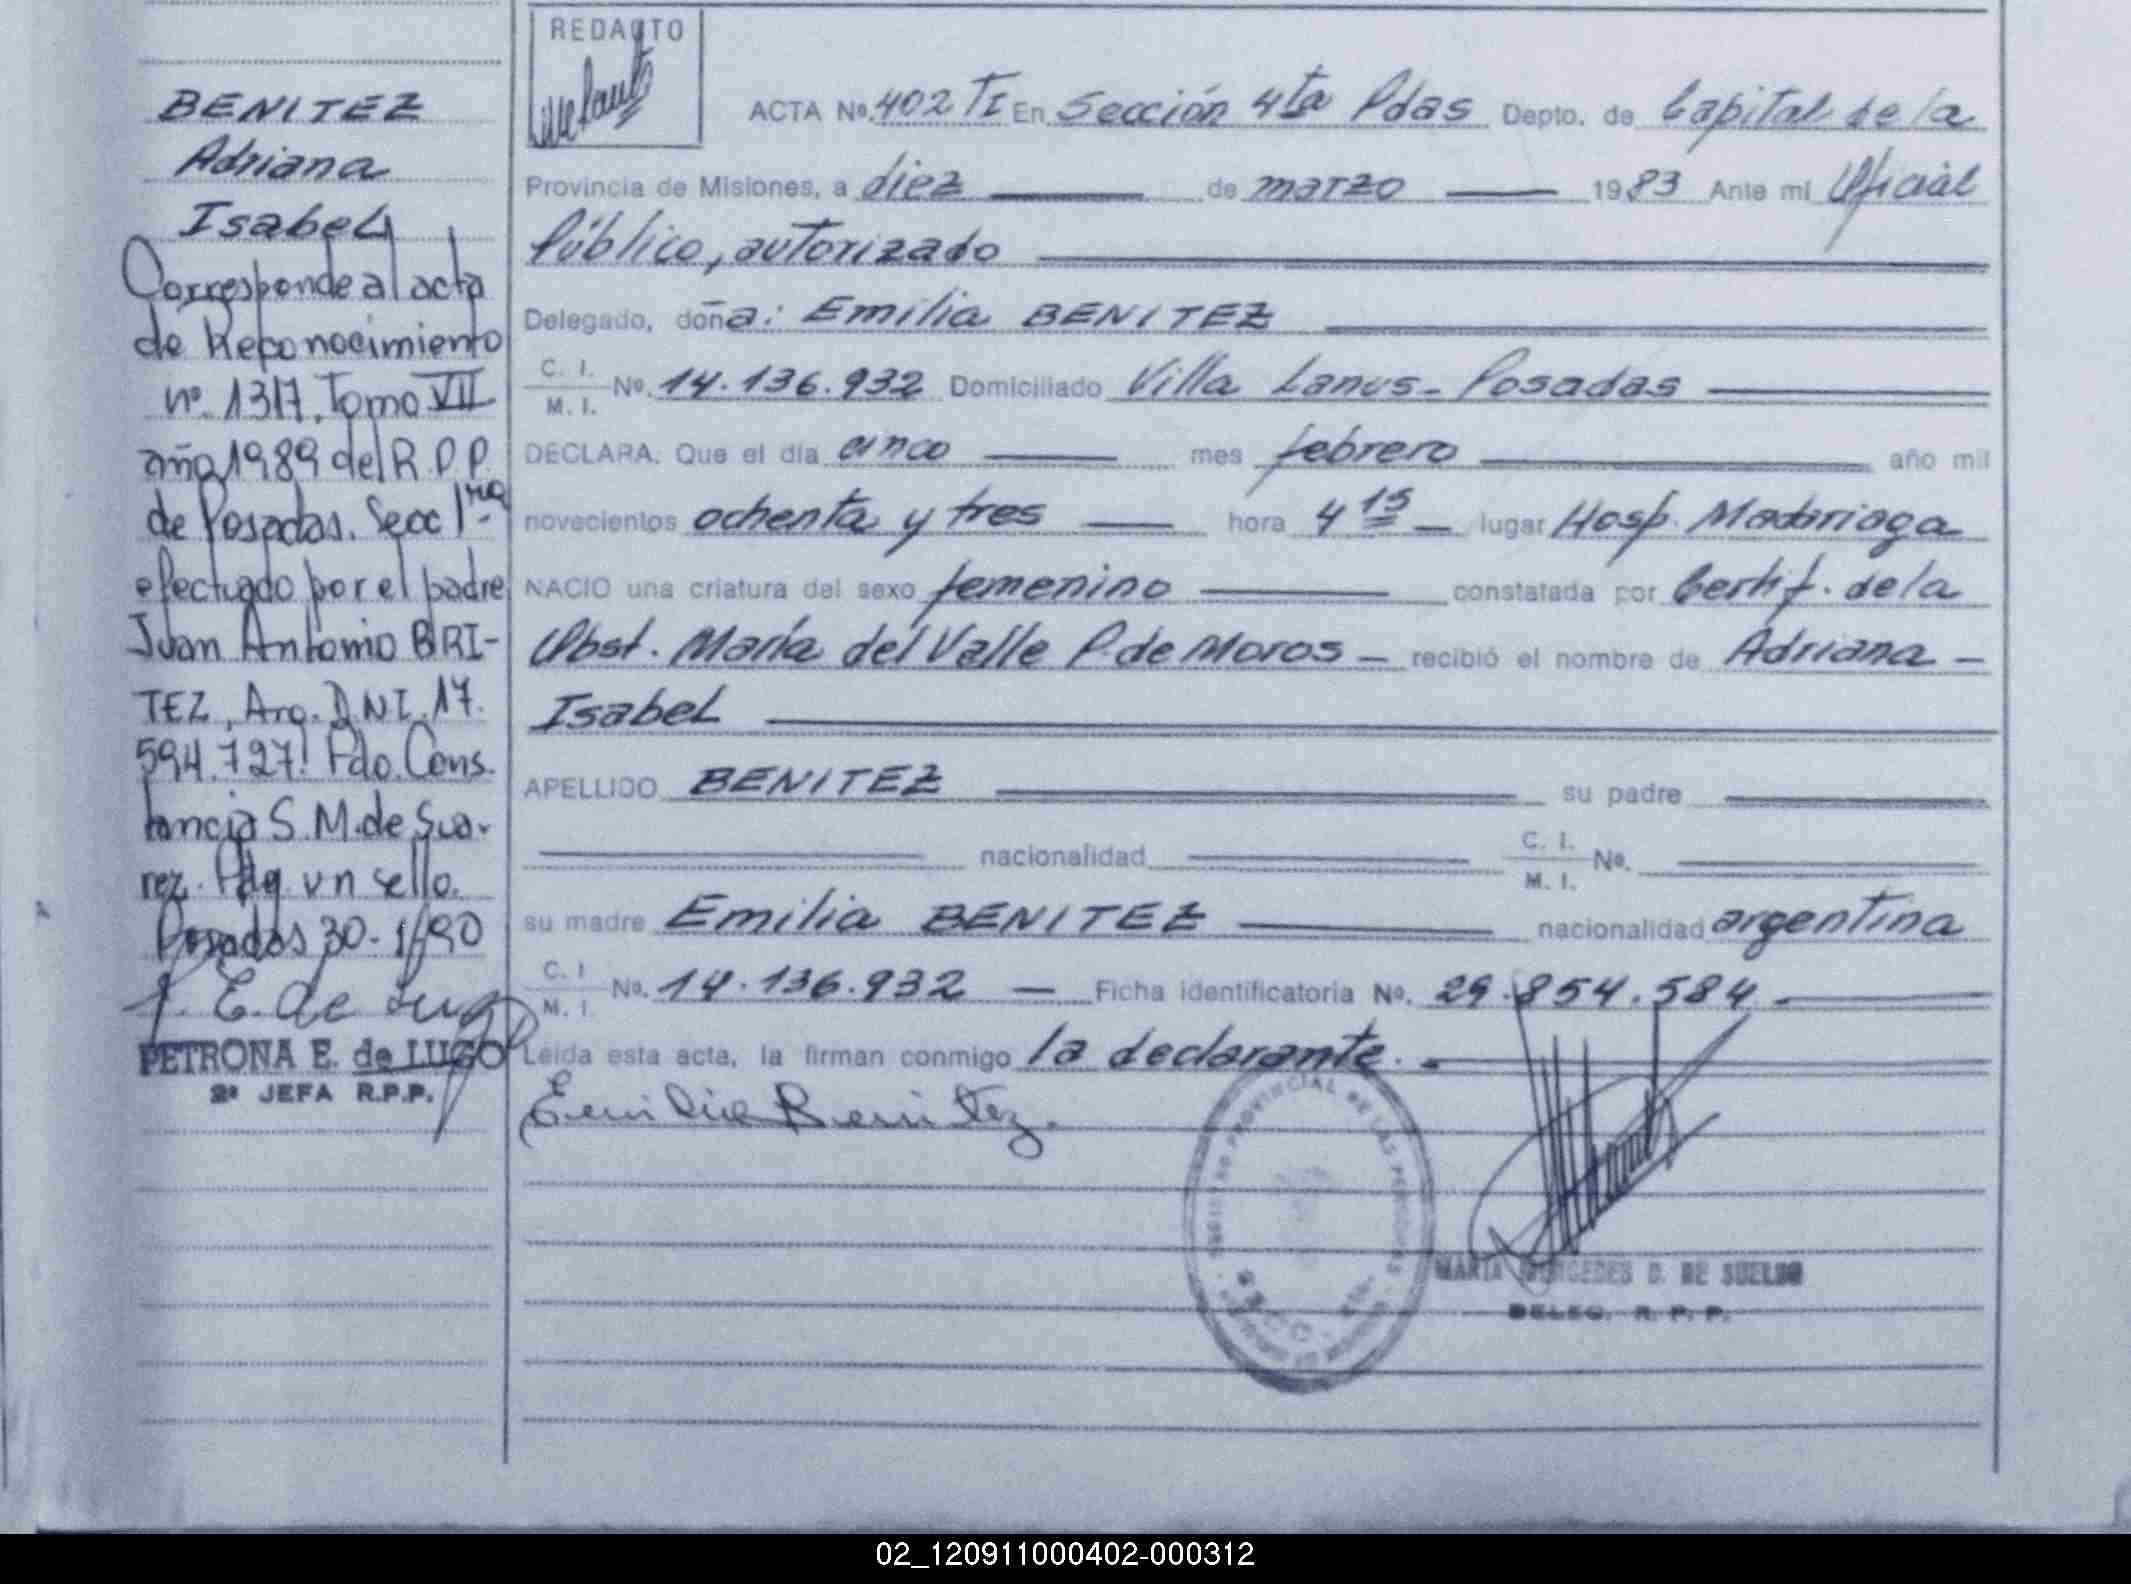 BENITEZ
Adriana
Isabel
Corresponde al acta
de Reconocimiento
nº. 1317. Tomo VII
año 1989 del R.P.P.
de Posadas. Secc 1ra
efectuado por el padre
Juan Antonio BRI-
TEZ, Arg. DNI. 17.
594.727! Fdo. Cons.
tancia S. M. de Sua-
rez. Hay un sello.
Posadas 30-1-90
PETRONA E. de LUGO
2ª JEFA R.P.P.
REDACTO
ACTA Nº. 402 TI En Sección 4ta Pdas Depto. de Capital de la
Provincia de Misiones, a diez de marzo 1983 Ante mi Oficial
Público, autorizado
Delegado, doña: Emilia BENITEZ
C. I.
M. I. Nº. 14.136.932 Domiciliado Villa Lanus - Posadas
DECLARA: Que el día cinco mes febrero año mil
novecientos ochenta y tres hora 4 15 lugar Hosp. Madariaga
NACIO una criatura del sexo femenino constatada por Certif. de la
Obst. María del Valle P. de Moros - recibió el nombre de Adriana -
Isabel
APELLIDO BENITEZ su padre
nacionalidad C. I.
M. I. Nº.
su madre Emilia BENITEZ nacionalidad argentina
C. I
M. I. Nº. 14.136.932 - Ficha identificatoria Nº. 29.854.584 -
Leída esta acta, la firman conmigo la declarante. -
Emilia Benitez.
REGISTRO PROVINCIAL DE LAS PERSONAS
SECC. 4ta.
MARIA MERCEDES D. DE SUELDO
DELEG. R. P. P.
02_120911000402-000312